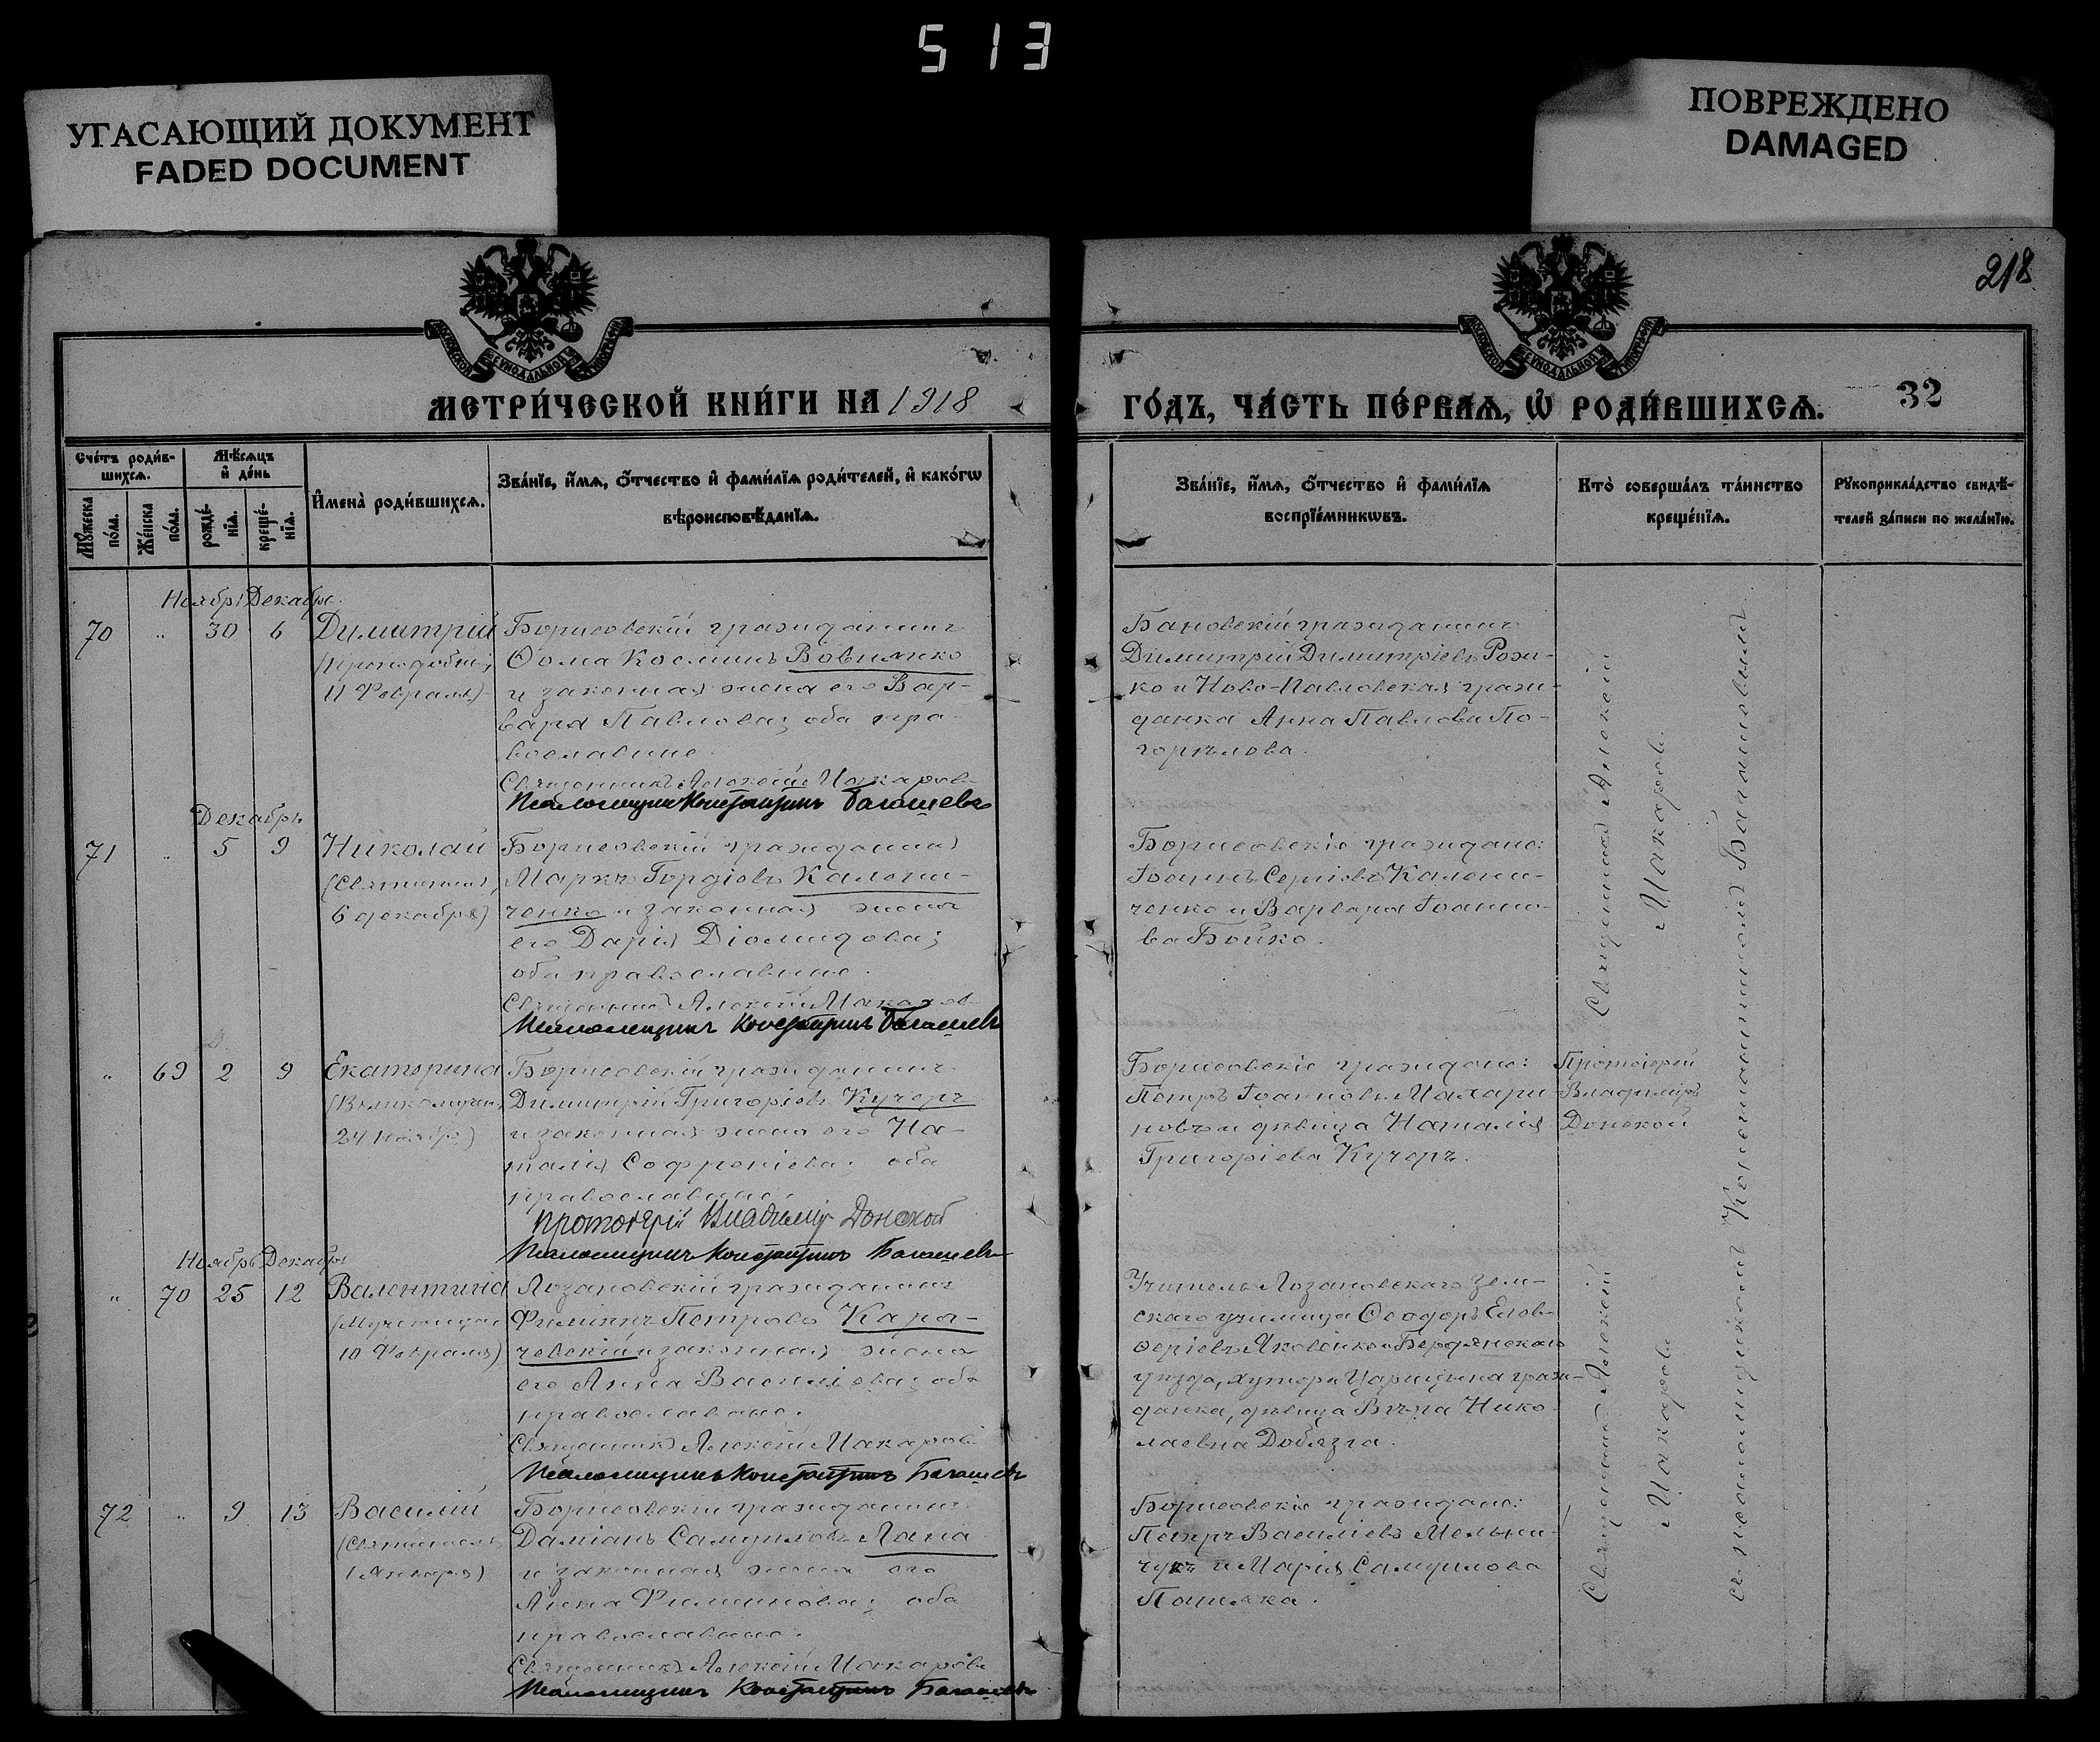 513
УГАСАЮЩИЙ ДОКУМЕНТ
FADED DOCUMENT
ПОВРЕЖДЕНО
DAMAGED
218
МЕТРИ́ЧЕСКОЙ КНИ́ГИ НА 1918
ГО́ДЪ, ЧА́СТЬ ПЕ́РВАЯ, Ѡ РОДИ́ВШИХСЯ.
32
Сче́тъ роди́в-
шихся.
Мѣ́сяцъ
и҆ де́нь
Мꙋ́жеска
по́ла.
Же́нска
по́ла.
рожде́-
нїѧ.
креще́-
нїѧ.
И҆мена̀ роди́вшихся.
Зва́нїе, и҆́мѧ, ѻ҆́тчество и҆ фами́лїѧ роди́телей, и҆ како́гѡ
вѣроисповѣ́данїѧ.
Зва́нїе, и҆́мѧ, ѻ҆́тчество и҆ фами́лїѧ
воспрїе́мникѡвъ.
Кто̀ соверша́лъ та́инство
креще́нїѧ.
Рꙋкоприкла́дство свидѣ́-
телей за́писи по жела́нїю.
Ноябрь Декабрь
70 " 30 6 Димитрій
(преподобн;
11 Февраля)
Борисовскій гражданинъ
Ѳома Косминъ Вовнянко
и законная жена его Вар-
вара Павлова; оба пра-
вославные.
Священникъ Алексій Макаровъ
Псаломщикъ Константинъ Багашевъ
Димитрій Димитріевъ Рож-
ко и Ново-Павловская граж-
данка Анна Павлова По-
горѣлова.
Декабрь
71 " 5 9 Николай
(Святителя,
6 декабря)
Борисовскій гражданинъ
Маркъ Гордіевъ Калени-
ченко и законная жена
его Дарія Діомидова;
оба православные.
Священникъ Алексій Макаровъ
Псаломщикъ Константинъ Багашевъ
Борисовскіе граждане:
Іоаннъ Сергіевъ Калени-
ченко и Варвара Іоанно-
ва Бойко.
Священникъ Алексій
Макаровъ.
" 69 2 9 Екатерина
(Великомучен,
24 ноября)
Борисовскій гражданинъ
Димитрій Григоріевъ Кучеръ
и законная жена его На-
талія Софроніева; оба
православные.
Протоіерей Владиміръ Донской
Псаломщикъ Константинъ Багашевъ
Борисовскіе граждане:
Петръ Іоанновъ Махари
новъ и дѣвица Наталія
Григоріева Кучеръ.
Протоіерей
Владиміръ
Донской
Ноябрь Декабрь
" 70 25 12 Валентина
(Мученица
10 Февраля)
Лозановскій гражданинъ
Филиппъ Петровъ Кара-
чевскій и законная жена
его Анна Васильева; оба
православные.
Священникъ Алексій Макаровъ
Псаломщикъ Константинъ Багашевъ
Учитель Лозановскаго зем-
скаго училища Ѳеодоръ Елев-
ѳеріевъ Яковенко и Бердянскаго
уѣзда, хутора Царицына граж-
данка, дѣвица Вѣра Нико-
лаевна Добязга.
72 " 9 13 Василій
(Святителя
1 Января)
Борисовскій гражданинъ
Даміанъ Самуиловъ Лапа
и законная жена его
Анна Филиппова; оба
православные.
Священникъ Алексій Макаровъ
Псаломщикъ Константинъ Багашевъ
Борисовскіе граждане:
Петръ Васильевъ Мельни-
чукъ и Марія Самуилова
Священникъ Алексій
Макаровъ
съ псаломщикомъ Константиномъ Багашевымъ